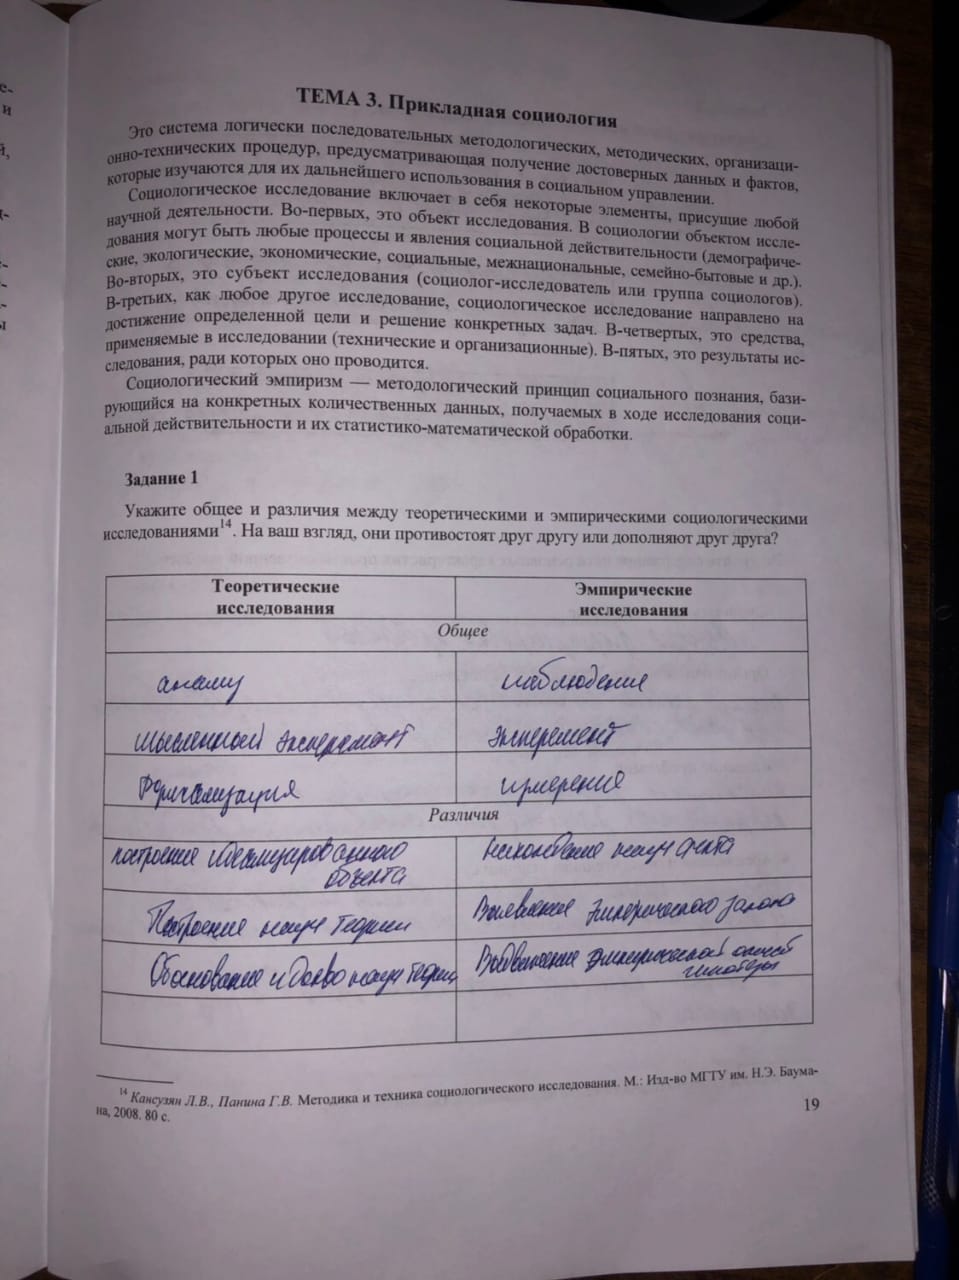 е-
и
й,
ТЕМА 3. Прикладная социология
Это система логически последовательных методологических, методических, организаци-
онно-технических процедур, предусматривающая получение достоверных данных и фактов,
которые изучаются для их дальнейшего использования в социальном управлении.
Социологическое исследование включает в себя некоторые элементы, присущие любой
научной деятельности. Во-первых, это объект исследования. В социологии объектом иссле-
дования могут быть любые процессы и явления социальной действительности (демографиче-
ские, экологические, экономические, социальные, межнациональные, семейно-бытовые и др.).
Во-вторых, это субъект исследования (социолог-исследователь или группа социологов).
В-третьих, как любое другое исследование, социологическое исследование направлено на
достижение определенной цели и решение конкретных задач. В-четвертых, это средства,
применяемые в исследовании (технические и организационные). В-пятых, это результаты ис-
следования, ради которых оно проводится.
Социологический эмпиризм — методологический принцип социального познания, бази-
рующийся на конкретных количественных данных, получаемых в ходе исследования соци-
альной действительности и их статистико-математической обработки.
Задание 1
Укажите общее и различия между теоретическими и эмпирическими социологическими
исследованиями14. На ваш взгляд, они противостоят друг другу или дополняют друг друга?
Теоретические
исследования
Эмпирические
исследования
Общее
анализ
наблюдение
мысленный эксперемент
эксперемент
Формализация
измерение
Различия
построение идеализированного
объекта
нахождение науч факта
Построение науч теории
Выявление эмперического закона
Обоснование и док-во науч теории
Выдвижение эмпирической
гипотезы
14 Кансузян Л.В., Панина Г.В. Методика и техника социологического исследования. М.: Изд-во МГТУ им. Н.Э. Баума-
на, 2008. 80 с.
19